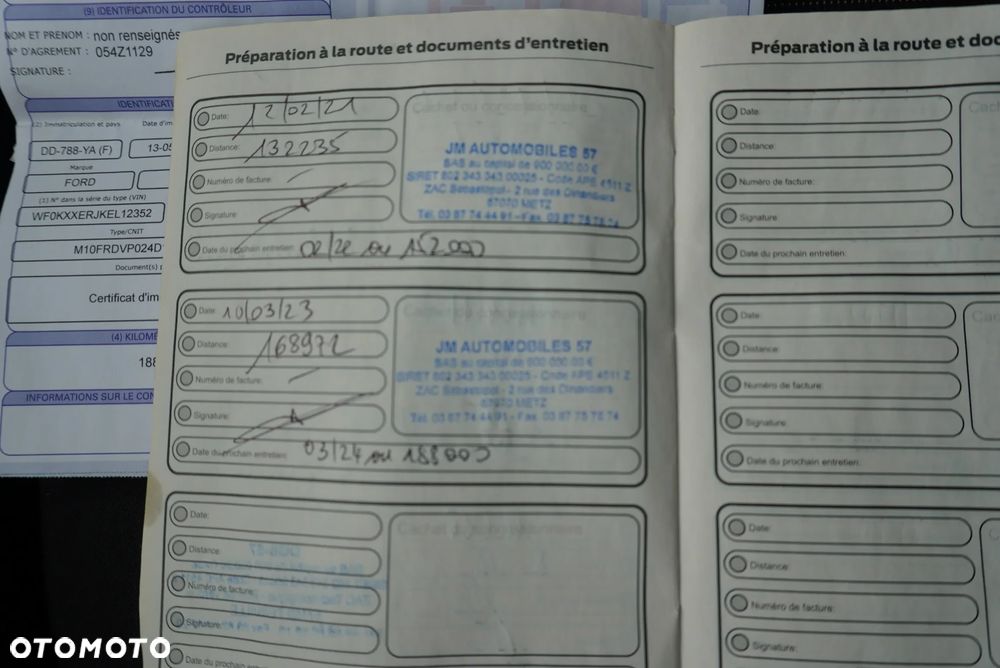 (9) IDENTIFICATION DU CONTRÔLEUR
NOM ET PRENOM : non renseignés
N° D'AGREMENT : 054Z1129
SIGNATURE :
IDENTIFICAT
(2) Immatriculation et pays
Date d'im
DD-788-YA (F)
13-05
Marque
FORD
(1) N° dans la série du type (VIN)
WF0KXXERJKEL12352
Type/CNIT
M10FRDVP024D
Document(s)
Certificat d'im
(4) KILOME
188
INFORMATIONS SUR LE CON
Préparation à la route et documents d'entretien
Date: 12/02/21
Distance: 132235
Numéro de facture:
Signature
Date du prochain entretien: 02/22 ou 152000
Cachet du concessionnaire
JM AUTOMOBILES 57
SAS au capital de 900 000.00 €
SIRET 802 343 343 00025 - Code APE 4511 Z
ZAC Sébastopol - 2 rue des Dinandiers
57070 METZ
Tél. 03 87 74 44 91 - Fax. 03 87 75 75 74
Date: 10/03/23
Distance: 168972
Numéro de facture:
Signature:
Date du prochain entretien: 03/24 ou 188000
Cachet du concessionnaire
JM AUTOMOBILES 57
SAS au capital de 900 000.00 €
SIRET 802 343 343 00025 - Code APE 4511 Z
ZAC Sébastopol - 2 rue des Dinandiers
57070 METZ
Tél. 03 87 74 44 91 - Fax. 03 87 75 75 74
Date:
Distance:
Numéro de facture:
Signature:
Date du prochain en
Cachet du concessionnaire
Préparation à la route et doc
Date:
Distance:
Numéro de facture:
Signature:
Date du prochain entretien:
Ca
Date:
Distance:
Numéro de facture:
Signature:
Date du prochain entretien:
Ca
Date:
Distance:
Numéro de facture:
Signature:
OTOMOTO